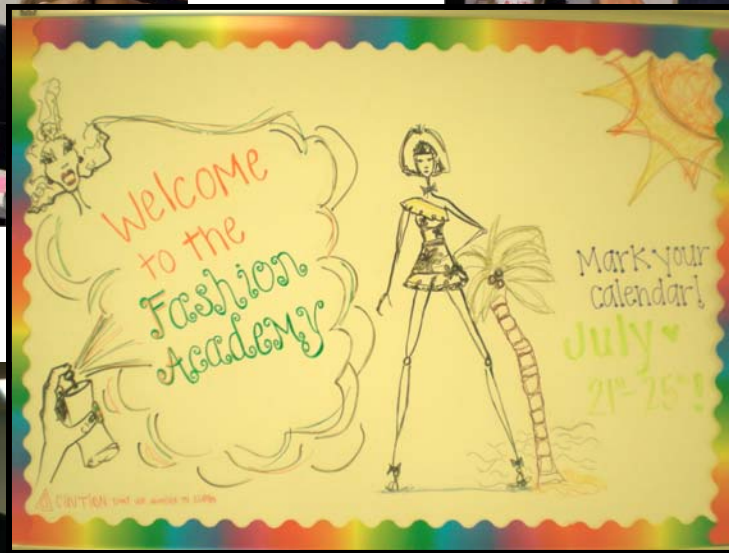 Welcome
to the
Fashion
Academy
Mark your
calendar!
July
21st-25th!
CAUTION